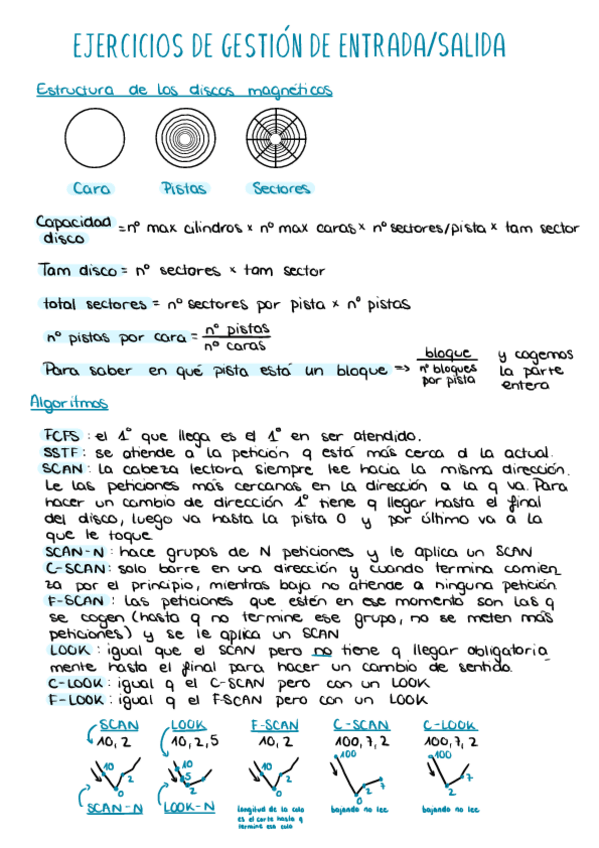 EJERCICIOS DE GESTIÓN DE ENTRADA/SALIDA
Estructura de los discos magnéticos
Cara Pistas Sectores
Capacidad disco = nº max cilindros x nº max caras x nº sectores/pista x tam sector
Tam disco = nº sectores x tam sector
total sectores = nº sectores por pista x nº pistas
nº pistas por cara = nº pistas / nº caras
Para saber en qué pista está un bloque => bloque / nº bloques por pista y cogemos la parte entera
Algoritmos
FCFS: el 1º que llega es el 1º en ser atendido.
SSTF: se atiende a la petición q está más cerca d la actual.
SCAN: la cabeza lectora siempre lee hacia la misma dirección.
Le las peticiones más cercanas en la dirección a la q va. Para
hacer un cambio de dirección 1º tiene q llegar hasta el final
del disco, luego va hasta la pista 0 y por último va a la
que le toque
SCAN-N: hace grupos de N peticiones y le aplica un SCAN
C-SCAN: solo borre en una dirección y cuando termina comien
za por el principio, mientras baja no atiende a ninguna petición
F-SCAN: las peticiones que estén en ese momento son las q
se cogen (hasta q no termine ese grupo, no se meten más
peticiones) y se le aplica un SCAN
LOOK: igual que el SCAN pero no tiene q llegar obligatoria
mente hasta el final para hacer un cambio de sentido.
C-LOOK: igual q el C-SCAN pero con un LOOK
F-LOOK: igual q el F-SCAN pero con un LOOK
SCAN LOOK F-SCAN C-SCAN C-LOOK
10, 2 10, 2, 5 10, 2 100, 7, 2 100, 7, 2
10 2 0
10 5 2 0
10 2 0
100 2 7 0
100 2 7
SCAN-N LOOK-N
longitud de la cola
es el corte hasta q
termine esa cola
bajando no lee
bajando no lee